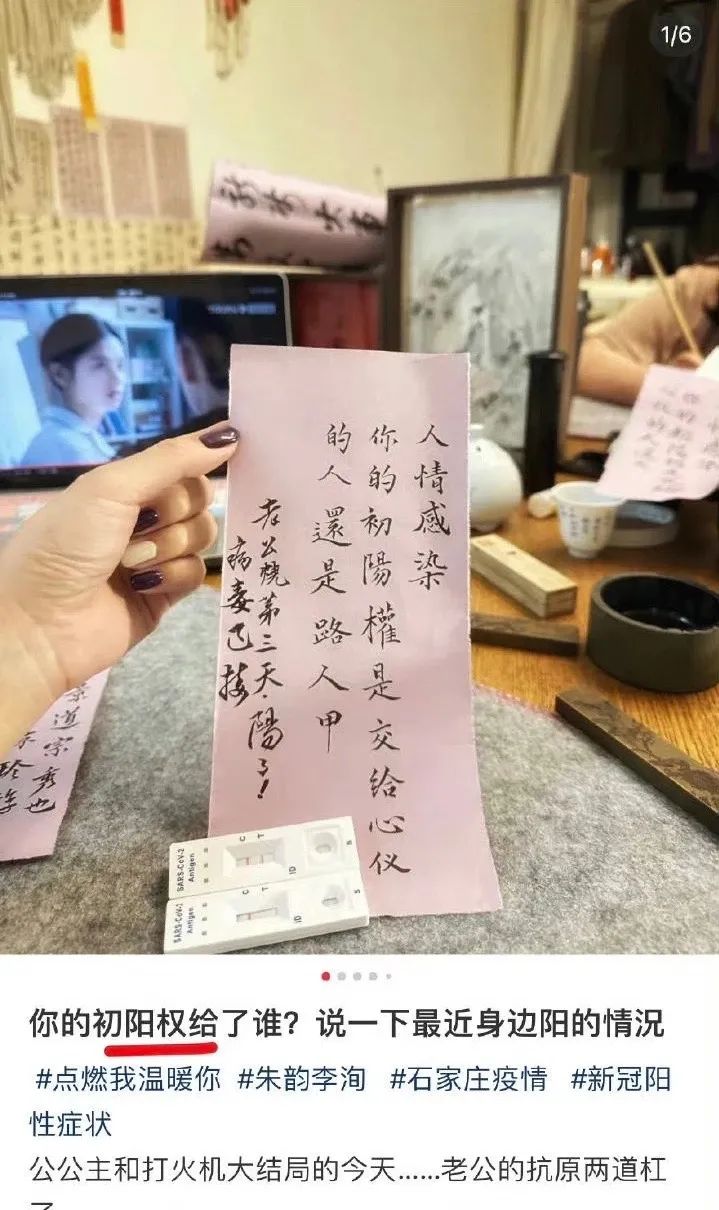 1/6
人情感染
你的初陽權是交給心仪
的人還是路人甲
老公烧第三天.陽了!
病毒已接
SARS-CoV-2
Antigen
C
T
ID
S
SARS-CoV-2
Antigen
C
T
ID
S
道宗秀也
你的初阳权给了谁？说一下最近身边阳的情况
#点燃我温暖你 #朱韵李洵 #石家庄疫情 #新冠阳
性症状
公公主和打火机大结局的今天......老公的抗原两道杠
了